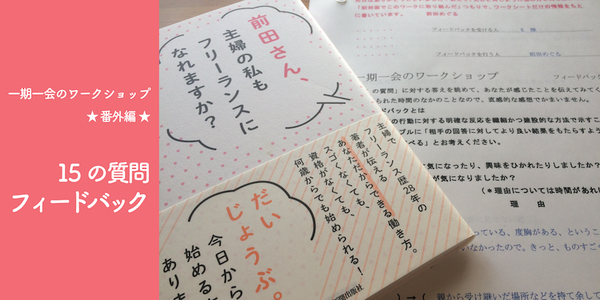 一期一会のワークショップ
★ 番外編 ★
15 の質問
フィードバック
前田さん、
主婦の私も
フリーランスに
なれますか？
主婦で
フリーランス歴28年の
著者が伝えてきる働き方。
あなただからできる
スゴくなくても、
資格がなくても、
何歳からでも始められる！
だい
じょうぶ。
今日から
始める
あり
出版社
一期一会のワークショップ
フィードバック
の質問」に対する答えを眺めて、あなたが感じたことを伝えてみてく
られた時間のなかのことなので、直感的な感想でかまいません。
バックとは
の行動に対する明確な反応を
プルに「相手の回答に対してより良い結果をもたらすよう
べる」とお考えください。
気になったり、興味をひかれたりしましたか？
が気になりましたか？
（＊理由については時間があれ
理　由
っている、度胸がある、というこ
いなかったので、きっと、ものすご
親から受け継いだ場所などを持て余して